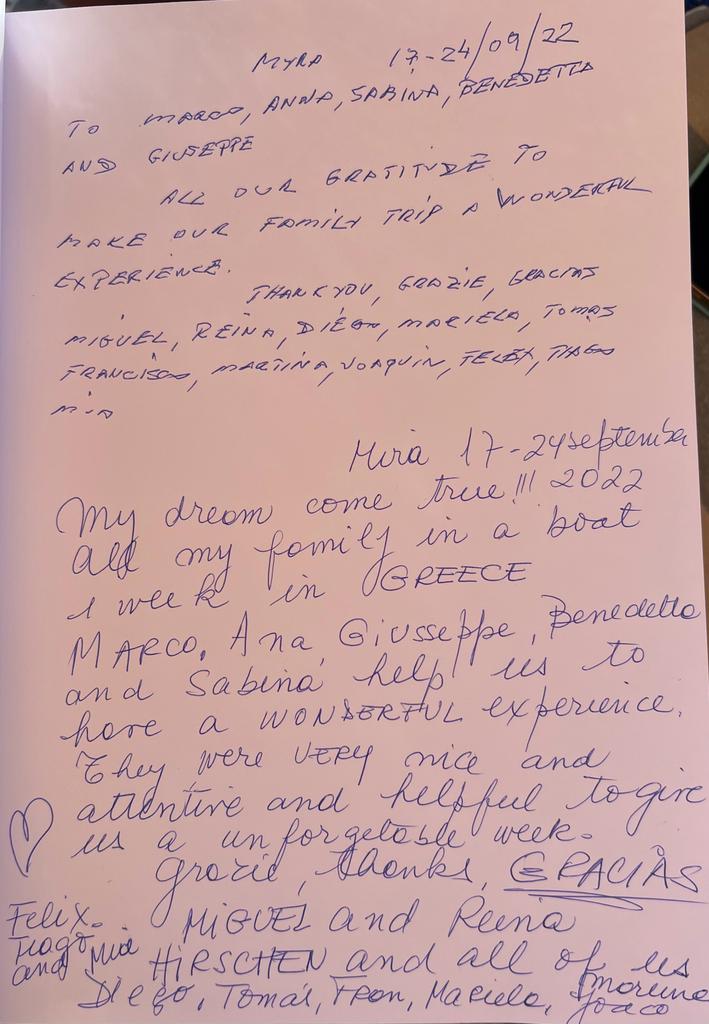 MYRA 17-24/09/22
TO MARCO, ANNA, SABINA, BENEDETTA
AND GIUSEPPE
ALL OUR GRATITUDE TO
MAKE OUR FAMILY TRIP A WONDERFUL
EXPERIENCE.
THANK YOU, GRAZIE, GRACIAS
MIGUEL, REINA, DIEGO, MARIELA, TOMAS
FRANCISCO, MARTINA, JOAQUIN, FELIX, TIAGO
MIA
Mira 17-24 september
My dream come true!!! 2022
All my family in a boat
1 week in GREECE
MARCO, Ana, Giusseppe, Benedetta
and Sabina help us to
have a WONDERFUL experience.
They were VERY nice and
attentive and helpful to give
us a unforgetable week.
Grazie, thanks, GRACIAS
Felix.
Tiago
and Mia
MIGUEL and Reina
HIRSCHEN and all of us
Diego, Tomás, Fran, Mariela,
Joaco